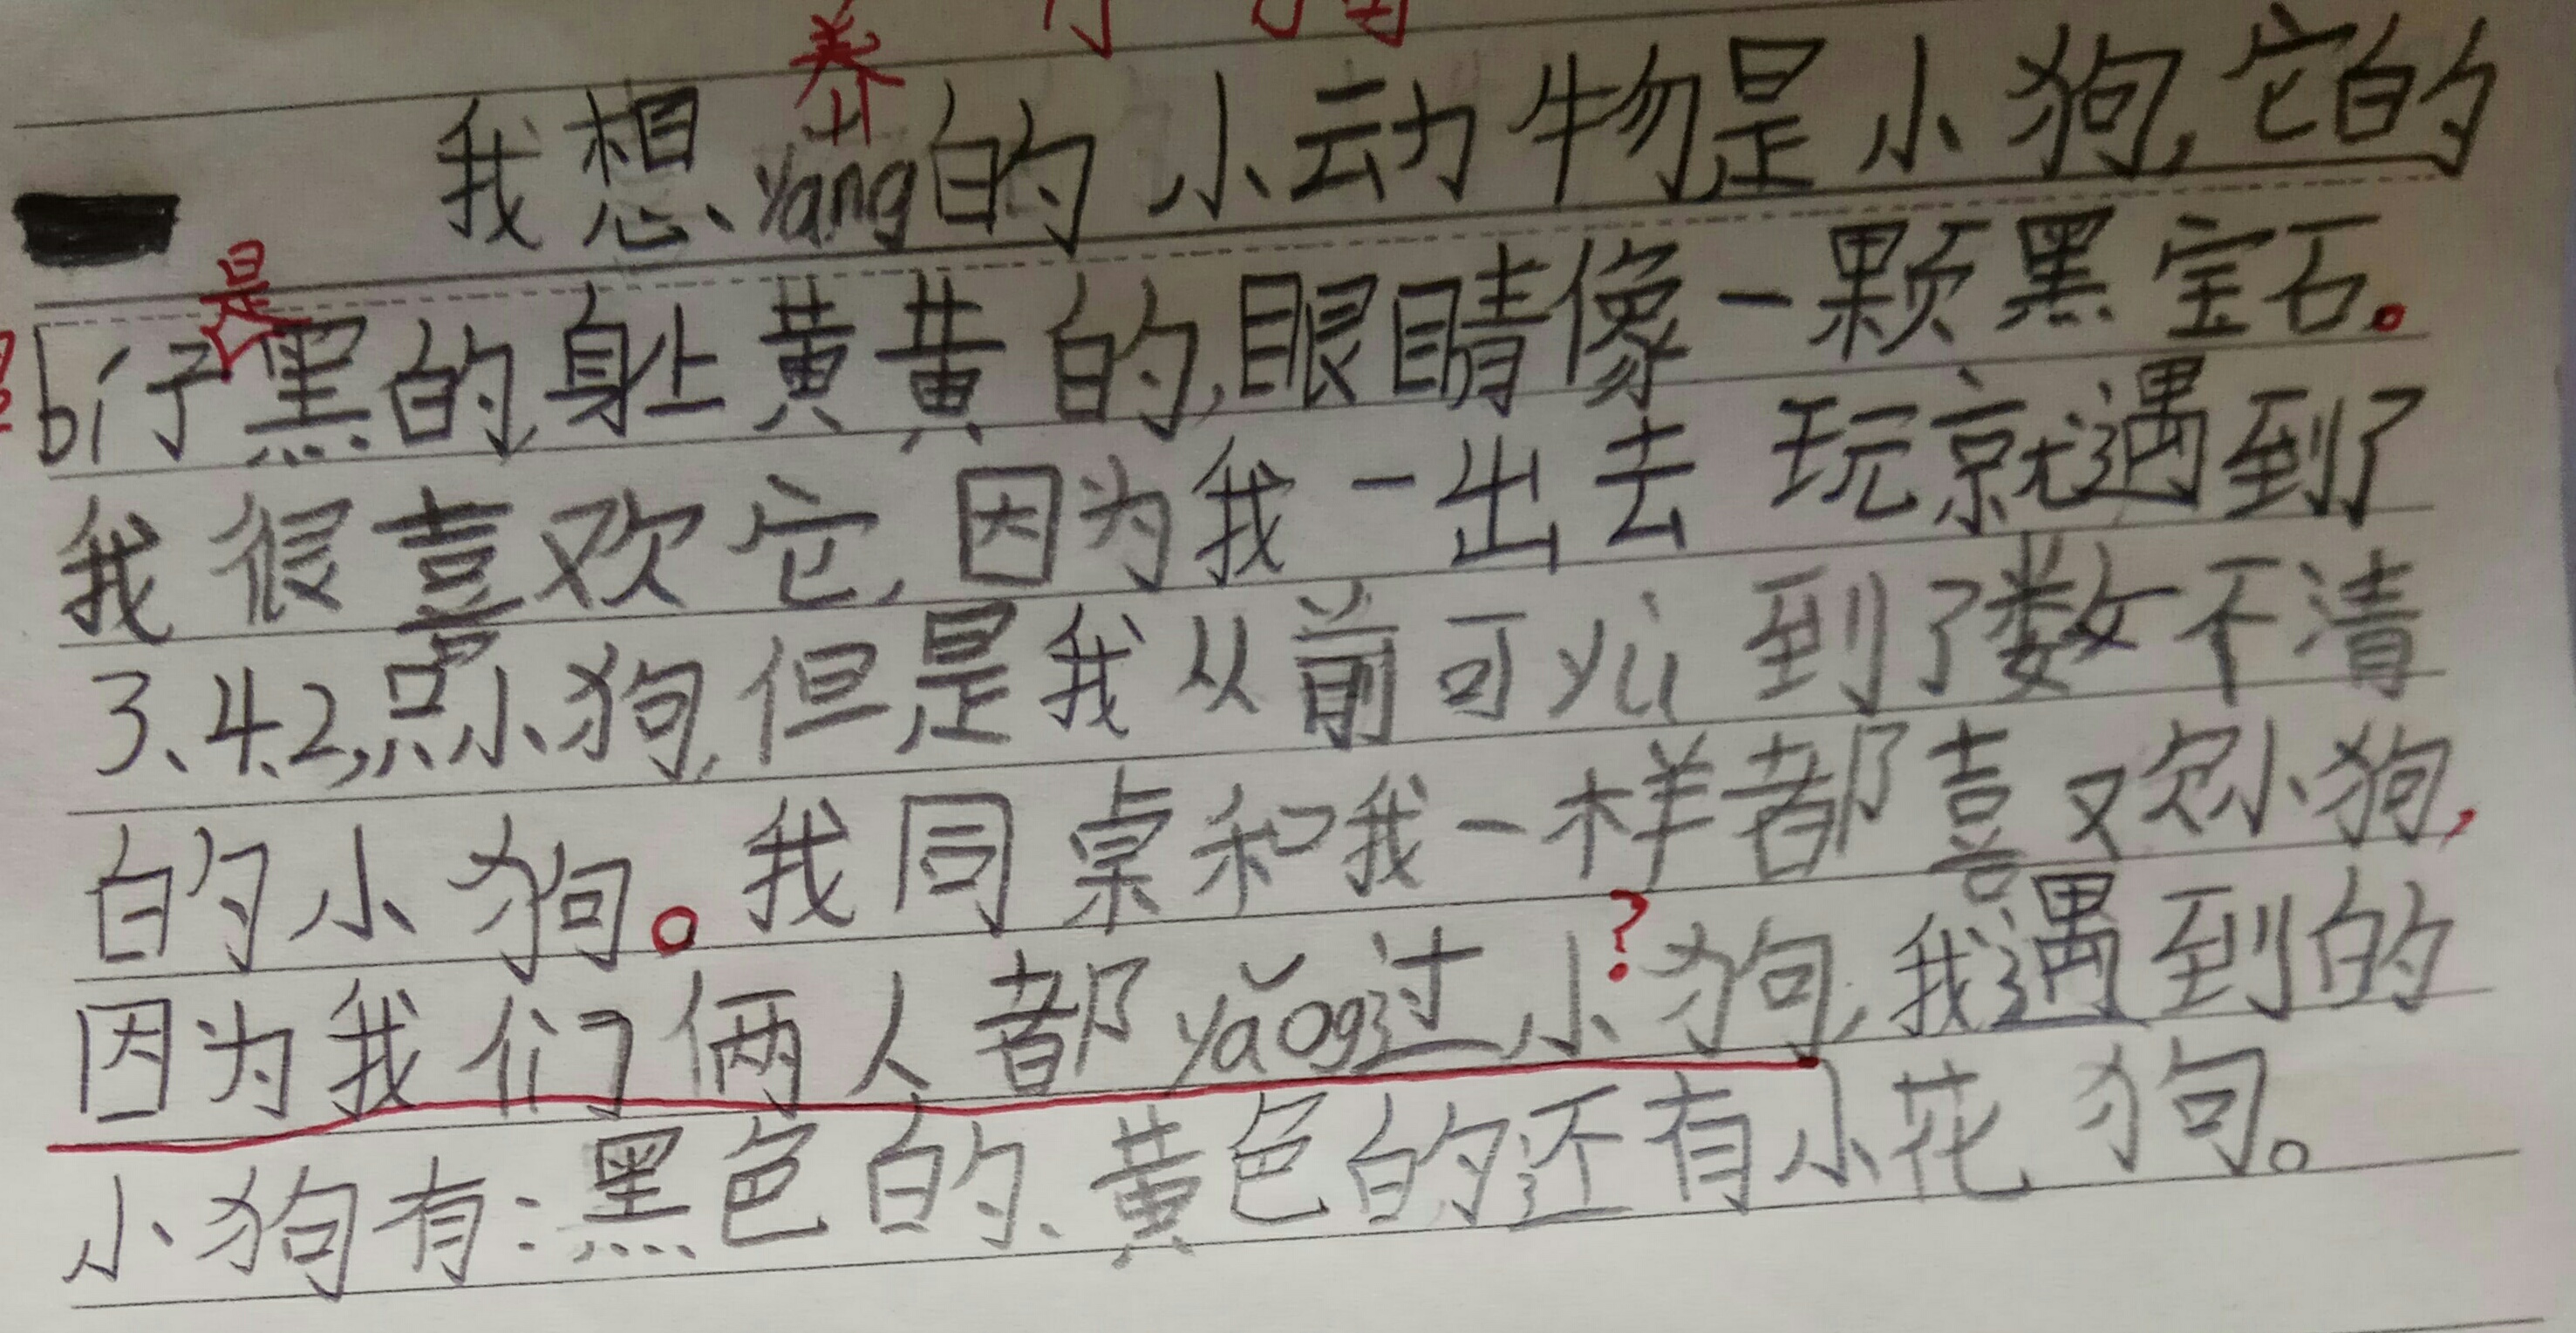 养
我想yang的小动物是小狗,它的
是
bí子黑的,身上黄黄的,眼睛像一颗黑宝石。
我很喜欢它,因为我一出去玩就遇到了
3、4、2,点小狗,但是我从前可yǐ到了数不清
的小狗。我同桌和我一样都喜欢小狗,
?
因为我们俩人都yǎog过小狗,我遇到的
小狗有:黑色的、黄色的还有小花狗。